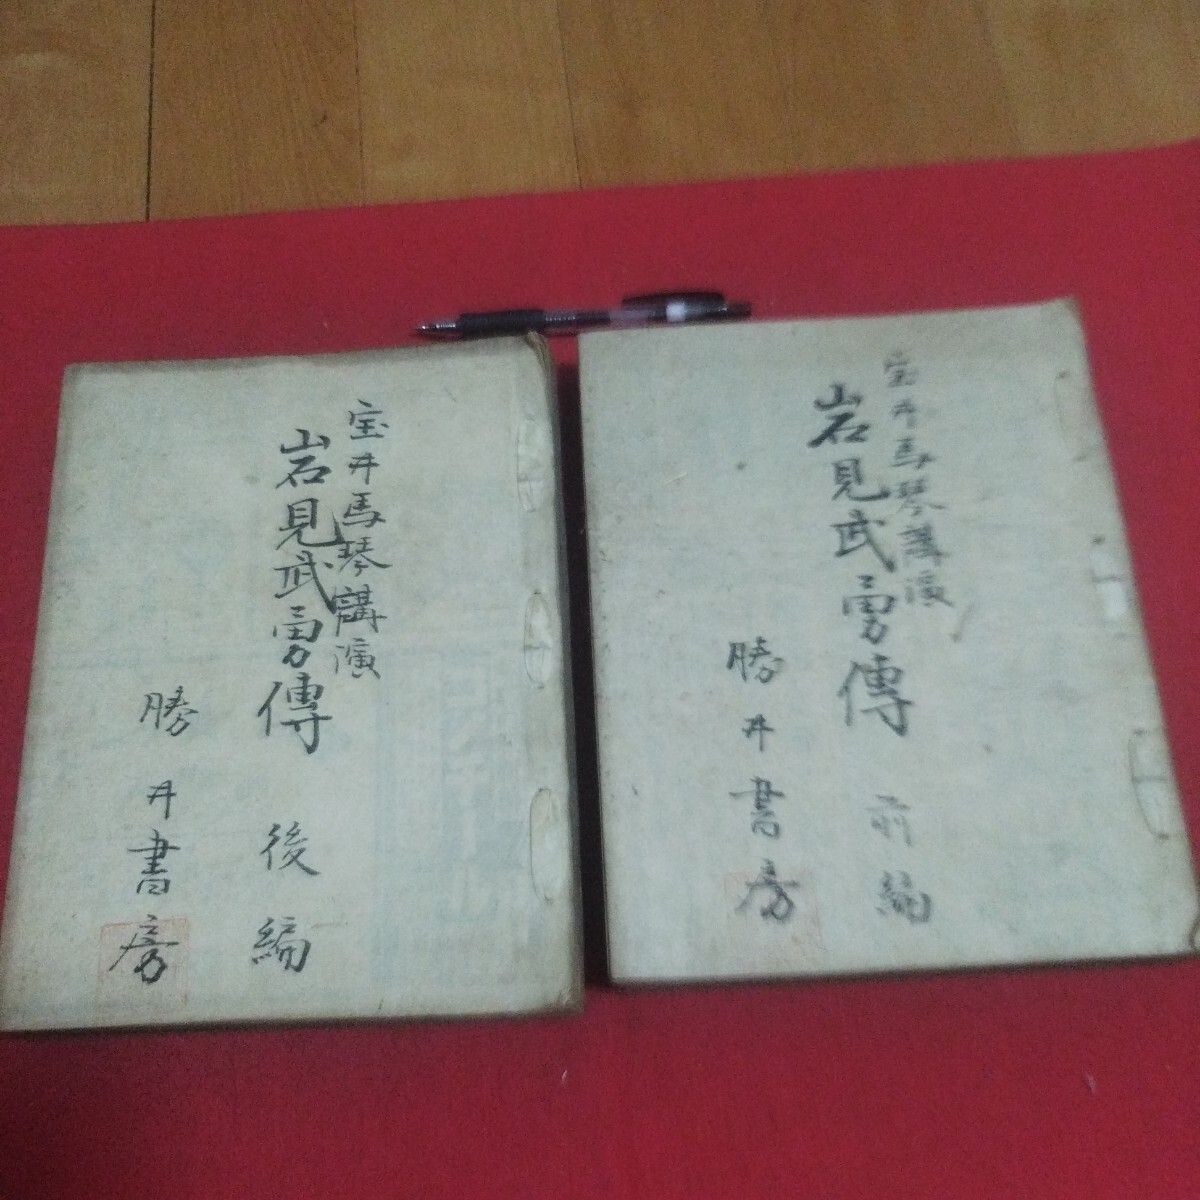 宝井馬琴講演
岩見武勇傳 前編
勝井書房
宝井馬琴講演
岩見武勇傳 後編
勝井書房